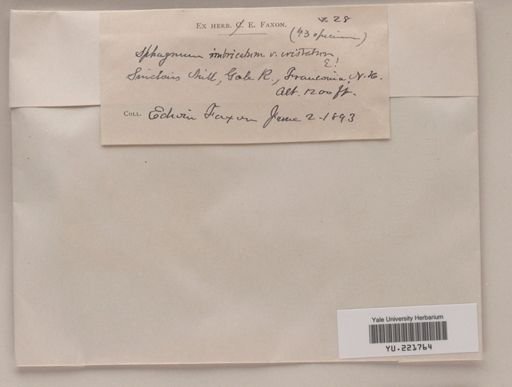 Ex herb. C. E. Faxon.
28
(43 specimens)
Sphagnum imbricatum v. cristatum
E!
Sinclair's Mill, Gale R., Franconia, N.H.
Alt. 1200 ft.
Coll. Edwin Faxon June 2-1893
Yale University Herbarium
YU.221764